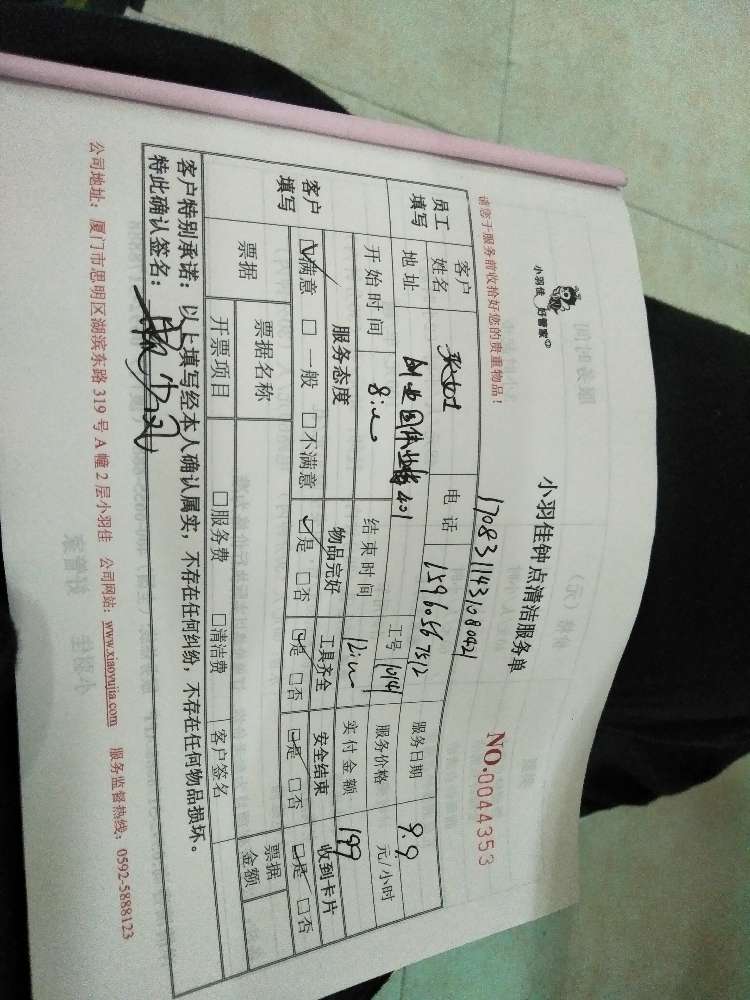 小羽佳 好管家
小羽佳钟点清洁服务单
请您于服务前收拾好您的贵重物品！
1708311431080421
NO.0044353
员工填写 客户姓名 电话 15960567512 服务日期 9.9
地址 401 工号 服务价格 元/小时
开始时间 8: 结束时间 12: 实付金额 199
客户填写 服务态度 物品完好 工具齐全 安全结束 收到卡片
☑满意 □一般 □不满意 ☑是 □否 ☑是 □否 ☑是 □否 ☑是 □否
票据 票据名称 □服务费 □清洁费 客户签名 票据金额
开票项目
客户特别承诺：以上填写经本人确认属实，不存在任何纠纷，不存在任何物品损坏。
特此确认签名：
公司地址：厦门市思明区湖滨东路 319 号 A 幢 2 层小羽佳 公司网站：www.xiaoyujia.com 服务监督热线：0592-5888123